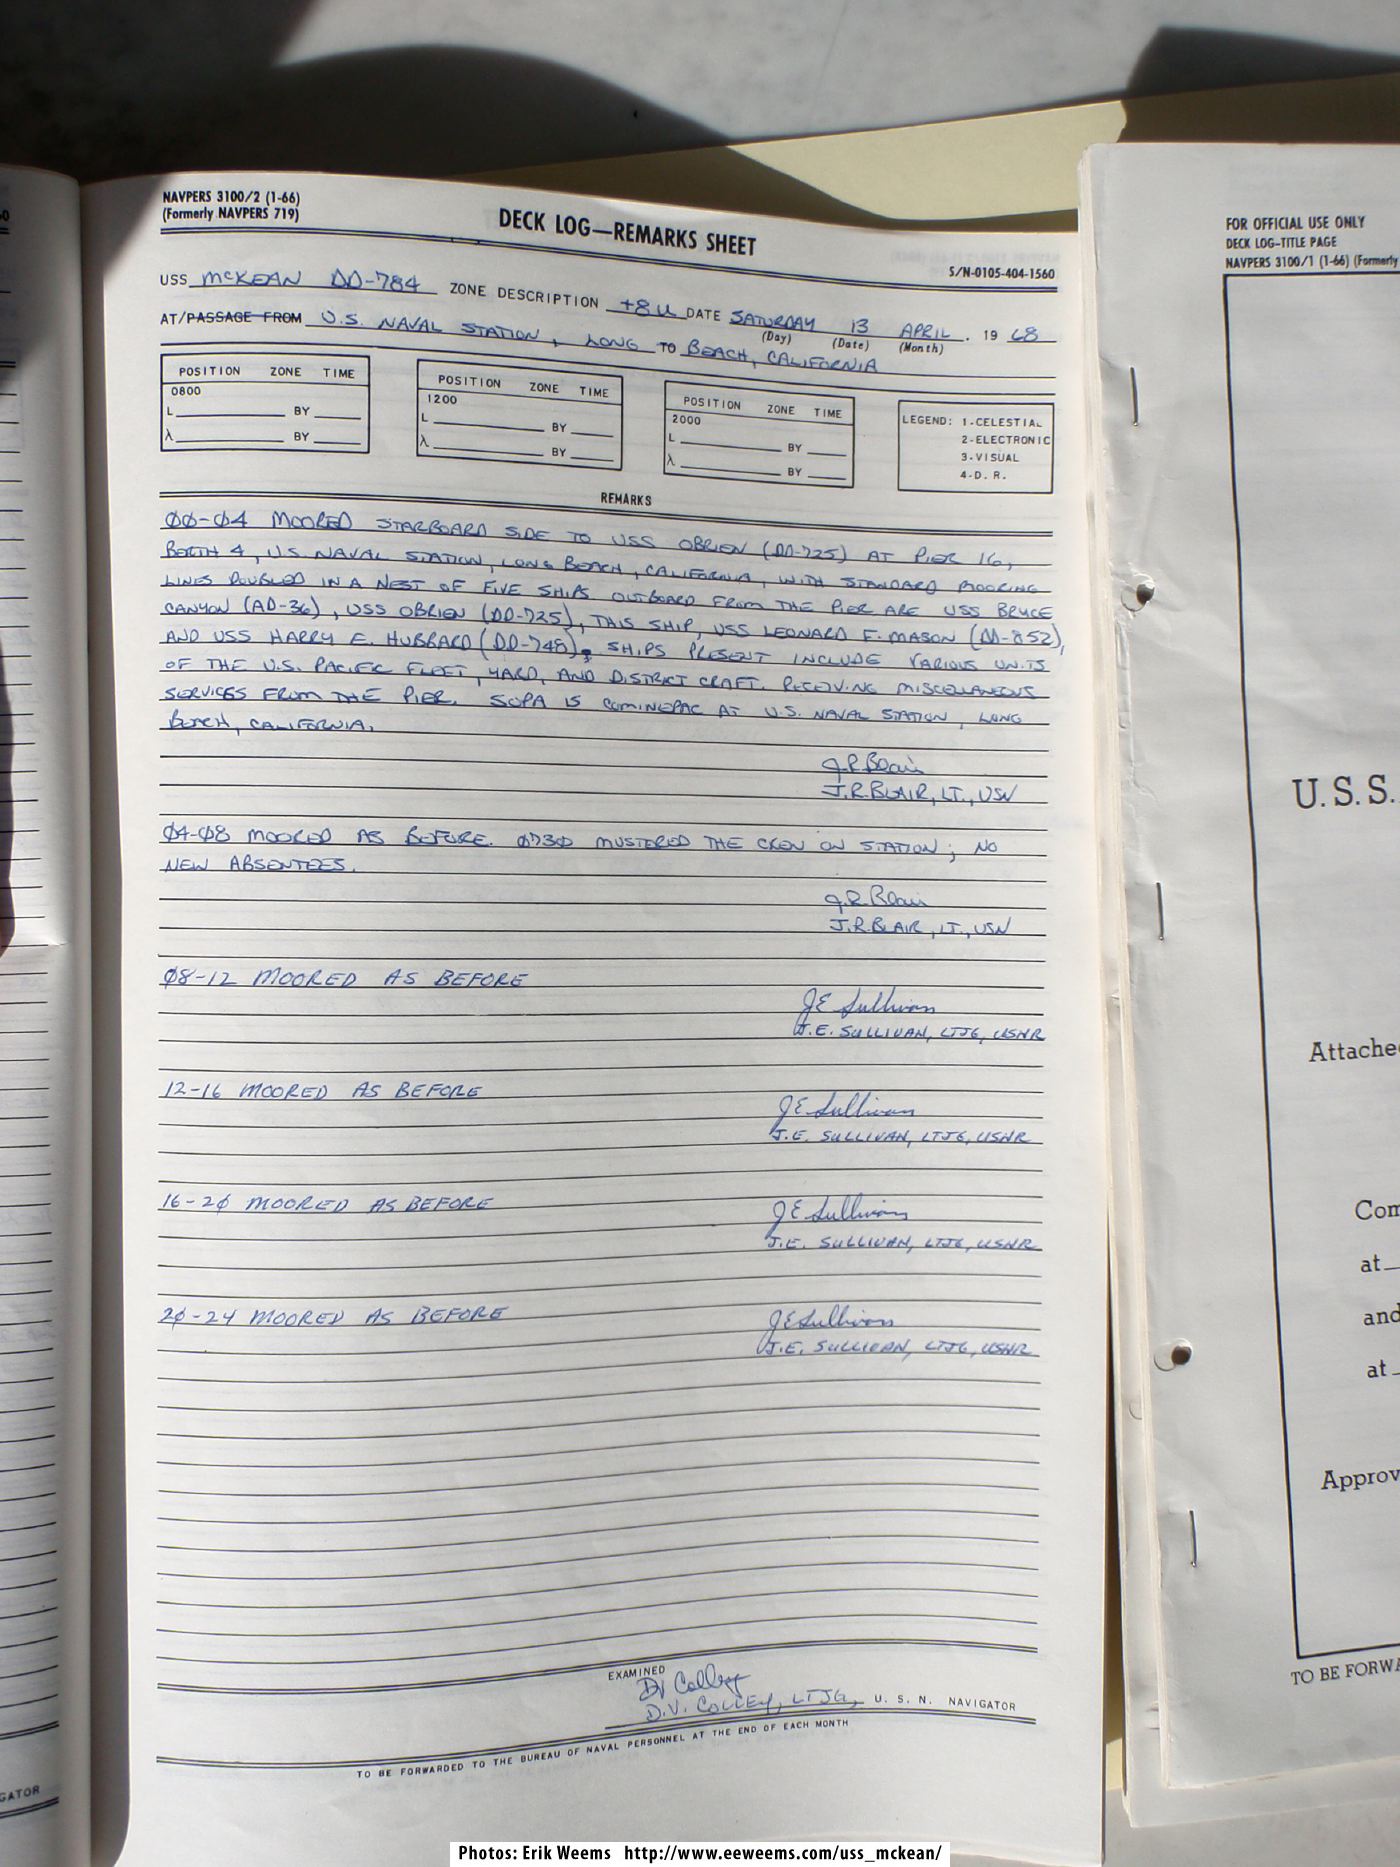 NAVPERS 3100/2 (1-66)
(Formerly NAVPERS 719)
DECK LOG—REMARKS SHEET
S/N-0105-404-1560
USS McKEAN DD-784 ZONE DESCRIPTION +8U DATE SATURDAY 13 APRIL . 19 68
(Day) (Date) (Month)
AT/PASSAGE FROM U.S. NAVAL STATION, LONG TO BEACH, CALIFORNIA
POSITION ZONE TIME
0800
L BY
λ BY
POSITION ZONE TIME
1200
L BY
λ BY
POSITION ZONE TIME
2000
L BY
λ BY
LEGEND: 1-CELESTIAL
2-ELECTRONIC
3-VISUAL
4-D. R.
REMARKS
00-04 MOORED STARBOARD SIDE TO USS OBRIEN (DD-725) AT PIER 16,
BERTH 4, U.S. NAVAL STATION, LONG BEACH, CALIFORNIA, WITH STANDARD MOORING
LINES DOUBLED IN A NEST OF FIVE SHIPS OUTBOARD FROM THE PIER ARE USS BRYCE
CANYON (AD-36), USS OBRIEN (DD-725), THIS SHIP, USS LEONARD F. MASON (DD-852),
AND USS HARRY E. HUBBARD (DD-748). SHIPS PRESENT INCLUDE VARIOUS UNITS
OF THE U.S. PACIFIC FLEET, YARD, AND DISTRICT CRAFT. RECEIVING MISCELLANEOUS
SERVICES FROM THE PIER. SOPA IS COMINEPAC AT U.S. NAVAL STATION, LONG
BEACH, CALIFORNIA.
J.R. Blair
J.R. BLAIR, LT., USN
04-08 MOORED AS BEFORE. 0730 MUSTERED THE CREW ON STATION; NO
NEW ABSENTEES.
J.R. Blair
J.R. BLAIR, LT., USN
08-12 MOORED AS BEFORE
JE Sullivan
J.E. SULLIVAN, LTJG, USNR
12-16 MOORED AS BEFORE
JE Sullivan
J.E. SULLIVAN, LTJG, USNR
16-20 MOORED AS BEFORE
JE Sullivan
J.E. SULLIVAN, LTJG, USNR
20-24 MOORED AS BEFORE
JE Sullivan
J.E. SULLIVAN, LTJG, USNR
EXAMINED
DV Colley
D.V. COLLEY, LTJG, U. S. N. NAVIGATOR
TO BE FORWARDED TO THE BUREAU OF NAVAL PERSONNEL AT THE END OF EACH MONTH
GATOR
FOR OFFICIAL USE ONLY
DECK LOG—TITLE PAGE
NAVPERS 3100/1 (1-66) (Formerly
U.S.S.
Attache
Com
at
and
at
Approv
TO BE FORWA
Photos: Erik Weems http://www.eeweems.com/uss_mckean/